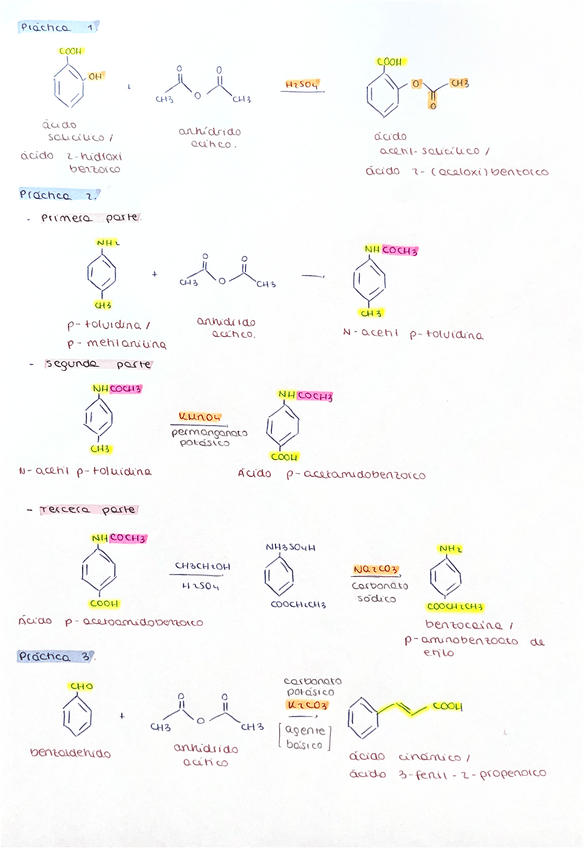 Práctica 1.
COOH
OH
+
O O
CH3 O CH3
H2SO4
COOH
O CH3
O
ácido
salicílico /
ácido 2-hidroxi
benzoico
anhídrido
acítico.
ácido
acetil-salicílico /
ácido 2-(acetoxi)bentoico
Práctica 2.
- Primera parte.
NH2
CH3
+
O O
CH3 O CH3
NHCOCH3
CH3
p-toluidina /
p-metilanilina
anhídrido
acítico.
N-acetil p-toluidina
- segunda parte
NHCOCH3
CH3
KMnO4
permanganato
potásico
NHCOCH3
COOH
N-acetil p-toluidina
Ácido p-acetamidobenzoico
- Tercera parte
NHCOCH3
COOH
CH3CH2OH
H2SO4
NH3SO4H
COOCH2CH3
Na2CO3
carbonato
sódico
NH2
COOCH2CH3
Ácido p-acetoamidobenzoico
benzocaína /
p-aminobenzoato de
etilo
Práctica 3.
CHO
+
O O
CH3 O CH3
carbonato
potásico
K2CO3
[agente
básico]
COOH
benzaldehído
anhídrido
acítico
ácido cinámico /
ácido 3-fenil-2-propenoico